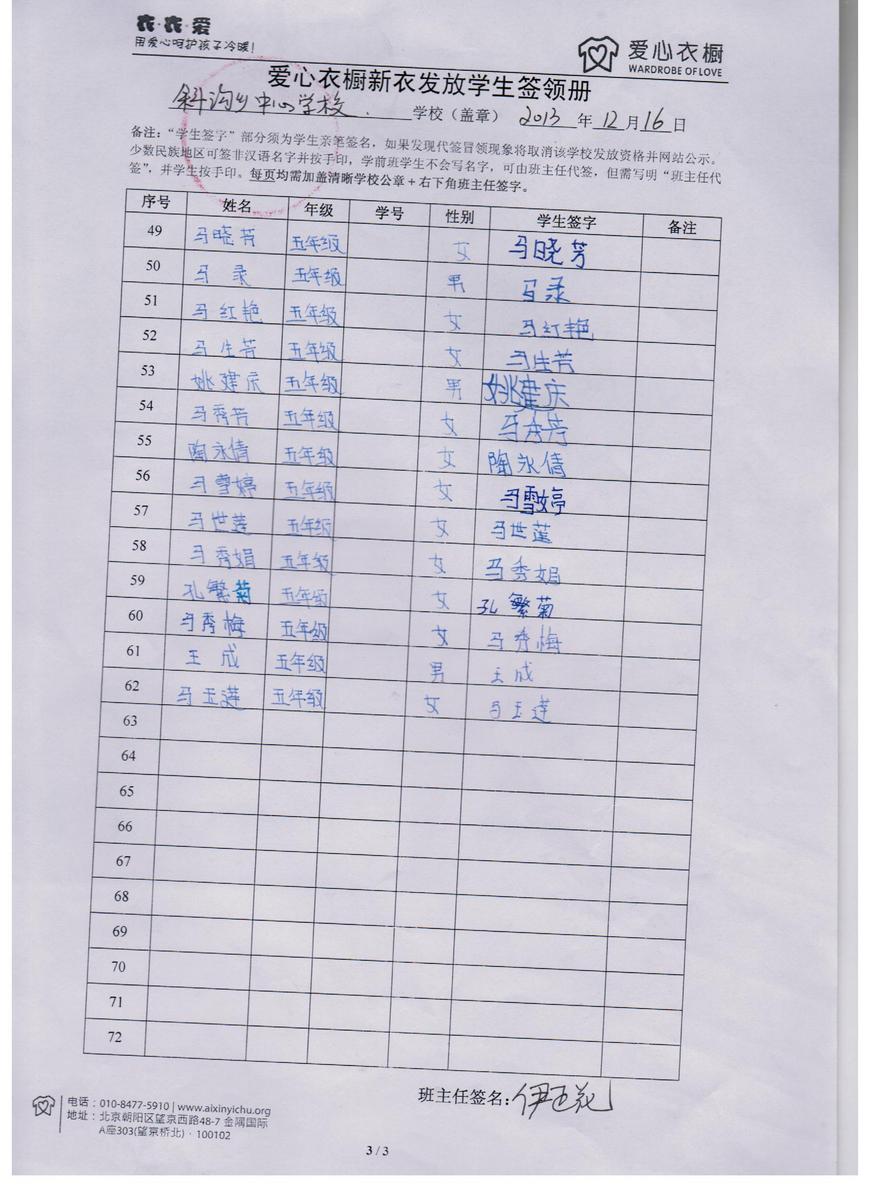 衣·衣·爱
用爱心呵护孩子冷暖!
爱心衣橱
WARDROBE OF LOVE
爱心衣橱新衣发放学生签领册
斜沟乡中心学校 学校（盖章） 2013 年 12 月 16 日
备注：“学生签字”部分须为学生亲笔签名，如果发现代签冒领现象将取消该学校发放资格并网站公示。
少数民族地区可签非汉语名字并按手印，学前班学生不会写名字，可由班主任代签，但需写明“班主任代
签”，并学生按手印。每页均需加盖清晰学校公章+右下角班主任签字。
序号 姓名 年级 学号 性别 学生签字 备注
49 马晓芳 五年级 女 马晓芳
50 马录 五年级 男 马录
51 马红艳 五年级 女 马红艳
52 马生芳 五年级 女 马生芳
53 姚建庆 五年级 男 姚建庆
54 马秀芳 五年级 女 马秀芳
55 陶永倩 五年级 女 陶永倩
56 马雪婷 五年级 女 马雪婷
57 马世莲 五年级 女 马世莲
58 马秀娟 五年级 女 马秀娟
59 孔繁菊 五年级 女 孔繁菊
60 马秀梅 五年级 女 马秀梅
61 王成 五年级 男 王成
62 马玉莲 五年级 女 马玉莲
63
64
65
66
67
68
69
70
71
72
班主任签名：伊
电话：010-8477-5910 | www.aixinyichu.org
地址：北京朝阳区望京西路48-7 金隅国际
A座303(望京桥北)·100102
3 / 3